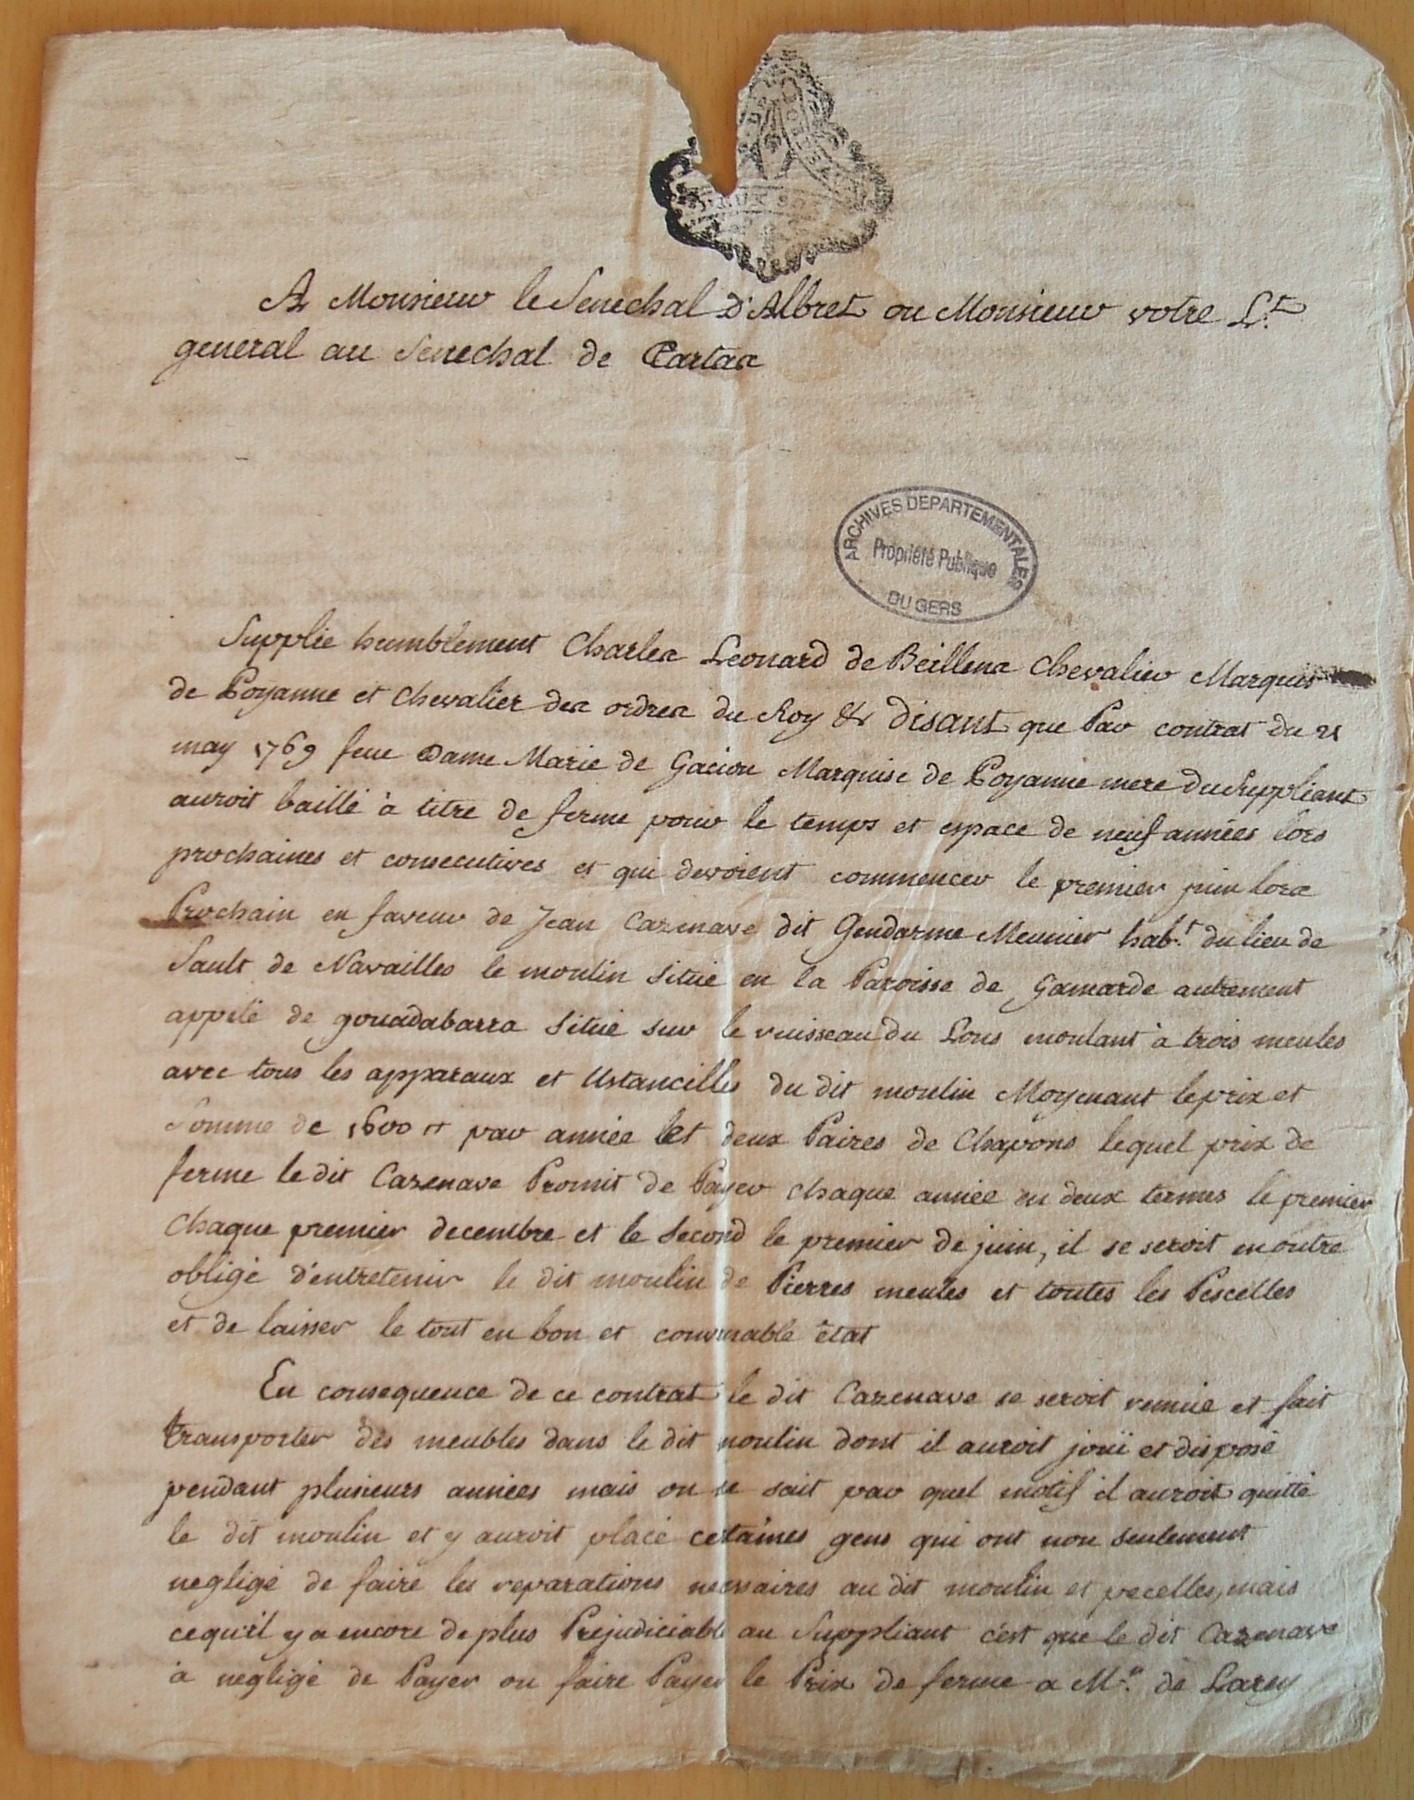 DEUX SO
A Monsieur le Senechal D'Albret ou Monsieur votre L.t
general au Senechal de Tartas
ARCHIVES DEPARTEMENTALES
Propriété Publique
DU GERS
Supplie humblement Charles Leonard de Beillens Chevalier Marquis
de Poyanne et Chevalier des ordres du Roy &r disant que Par contrat du 21
may 1769 feue Dame Marie de Gacion Marquise de Poyanne mere du Suppliant
auroit baillé à titre de ferme pour le temps et espace de neuf années lors
prochaines et consecutives et qui devoient commencer le premier juin lors
Prochain en faveur de Jean Cazenave dit Gendarme Meunier hab.t du lieu de
Sault de Navailles le moulin situé en la Paroisse de Gamarde autrement
appelé de gouadabarra situé sur le ruisseau du Lous moulant à trois meules
avec tous les apparaux et Ustancilles du dit moulin Moyenant le prix et
Somme de 1600 tt par année et deux Paires de Chapons lequel prix de
ferme le dit Cazenave Promit de Payer chaque année en deux termes le premier
chaque premier decembre et le second le premier de juin, il se seroit en outre
obligé d'entretenir le dit moulin de Pierres meules et toutes les Pescelles
et de laisser le tout en bon et convenable état
En consequence de ce contrat le dit Cazenave se seroit remüé et fait
transporter des meubles dans le dit moulin dont il auroit jouï et disposé
pendant plusieurs années mais on ne sait par quel motif il auroit quitté
le dit moulin et y auroit placé cetaines gens qui ont non seulement
negligé de faire les reparations necessaires au dit moulin et pecelles, mais
cequ'il y a encore de plus Prejudiciable au Suppliant c'est que le dit Cazenave
à negligé de Payer ou faire Payer le Prix de ferme a M.r de Larey